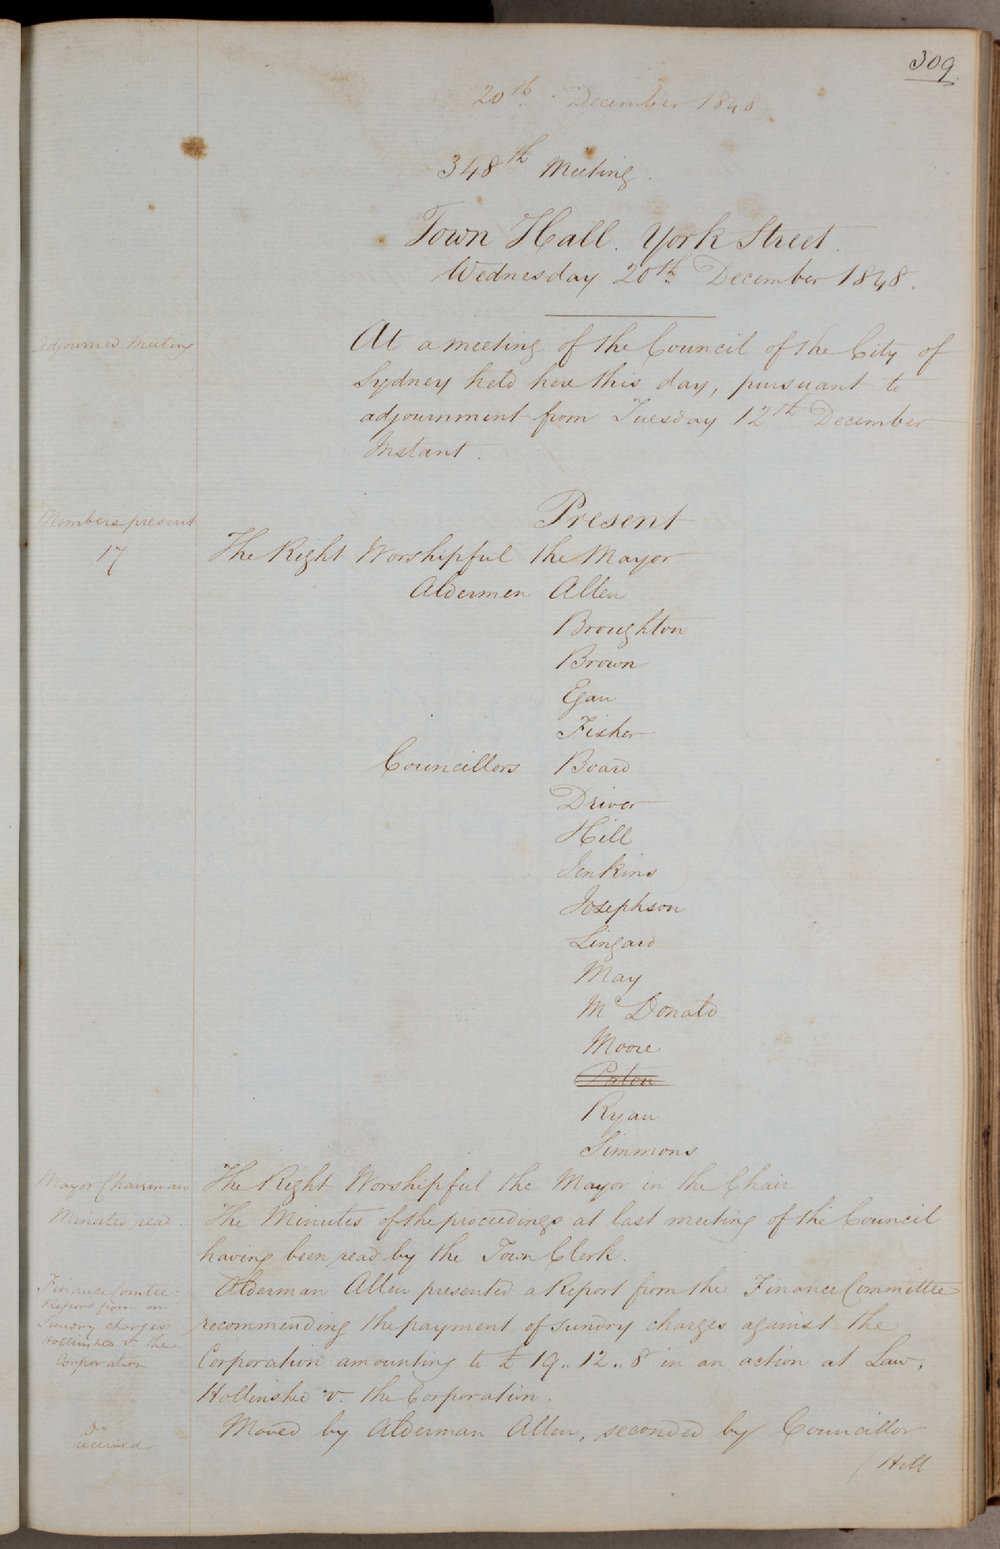 309.
20th December 1848
348th Meeting.
Town Hall. York Street.
Wednesday 20th December 1848.
Adjourned Meeting
At a meeting of the Council of the City of
Sydney held here this day, pursuant to
adjournment from Tuesday 12th December
Instant.
Members present
17
Present
The Right Worshipful the Mayor
Aldermen Allen
Broughton
Brown
Egan
Fisher
Councillors Board
Driver
Hill
Jenkins
Josephson
Lingard
May
McDonald
Moore
Paton
Ryan
Simmons
Mayor Chairman
The Right Worshipful the Mayor in the Chair
Minutes read.
The Minutes of the proceedings at last meeting of the Council
having been read by the Town Clerk.
Finance Comtee:
Report from on
Sundry charges
Hollinshed & the
Corporation
Alderman Allen presented a Report from the Finance Committee
recommending the payment of sundry charges against the
Corporation amounting to £19..12..8 in an action at Law,
Hollinshed v. the Corporation.
Do
received
Moved by Alderman Allen, seconded by Councillor
/ Hill